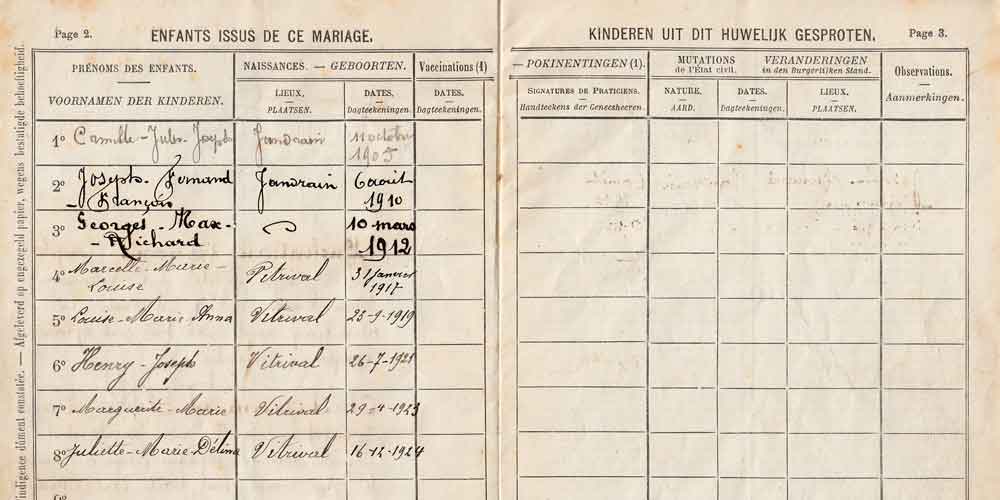 Page 2.
ENFANTS ISSUS DE CE MARIAGE.
PRÉNOMS DES ENFANTS.
VOORNAMEN DER KINDEREN.
NAISSANCES. — GEBOORTEN.
LIEUX.
PLAATSEN.
DATES.
Dagteekeningen.
Vaccinations (1)
DATES.
Dagteekeningen.
1º Camille-Jules-Joseph Jandrain 11 octobre
1905
2º Joseph-Fernand Jandrain 6 août
-François 1910
3º Georges-Max- 10 mars
-Richard 1912
4º Marcelle-Marie- Vitrival 31 janvier
Louise 1917
5º Louise-Marie Anna Vitrival 25-9-1919
6º Henry-Joseph Vitrival 26-7-1921
7º Marguerite-Marie Vitrival 29-4-1923
8º Juliette-Marie-Délima Vitrival 16-12-1924
9º
indigence dûment constatée. — Afgeleverd op ongezegeld papier, wegens bestatigde behoeftigheid.
KINDEREN UIT DIT HUWELIJK GESPROTEN.
Page 3.
— POKINENTINGEN (1).
SIGNATURES DE PRATICIENS.
Handteekens der Geneesheeren.
MUTATIONS
de l'État civil.
VERANDERINGEN
in den Burgerlijken Stand.
NATURE.
AARD.
DATES.
Dagteekeningen.
LIEUX.
PLAATSEN.
Observations.
Aanmerkingen.